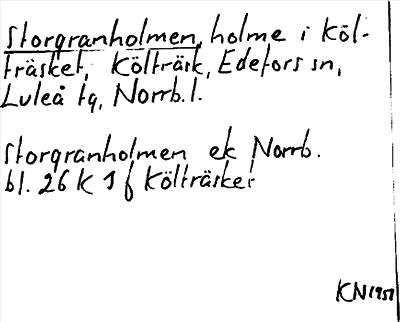 Storgranholmen, holme i Köl-
träsket, Költräsk, Edefors sn,
Luleå tg, Norrb. l.
Storgranholmen ek Norrb.
bl. 26 K 1 f Költräsket
KN 1957